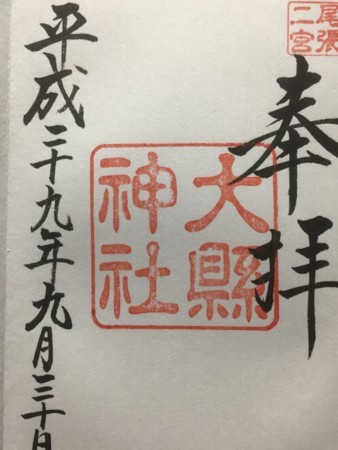 尾張
二宮
奉拝
大縣
神社
平成二十九年九月三十日